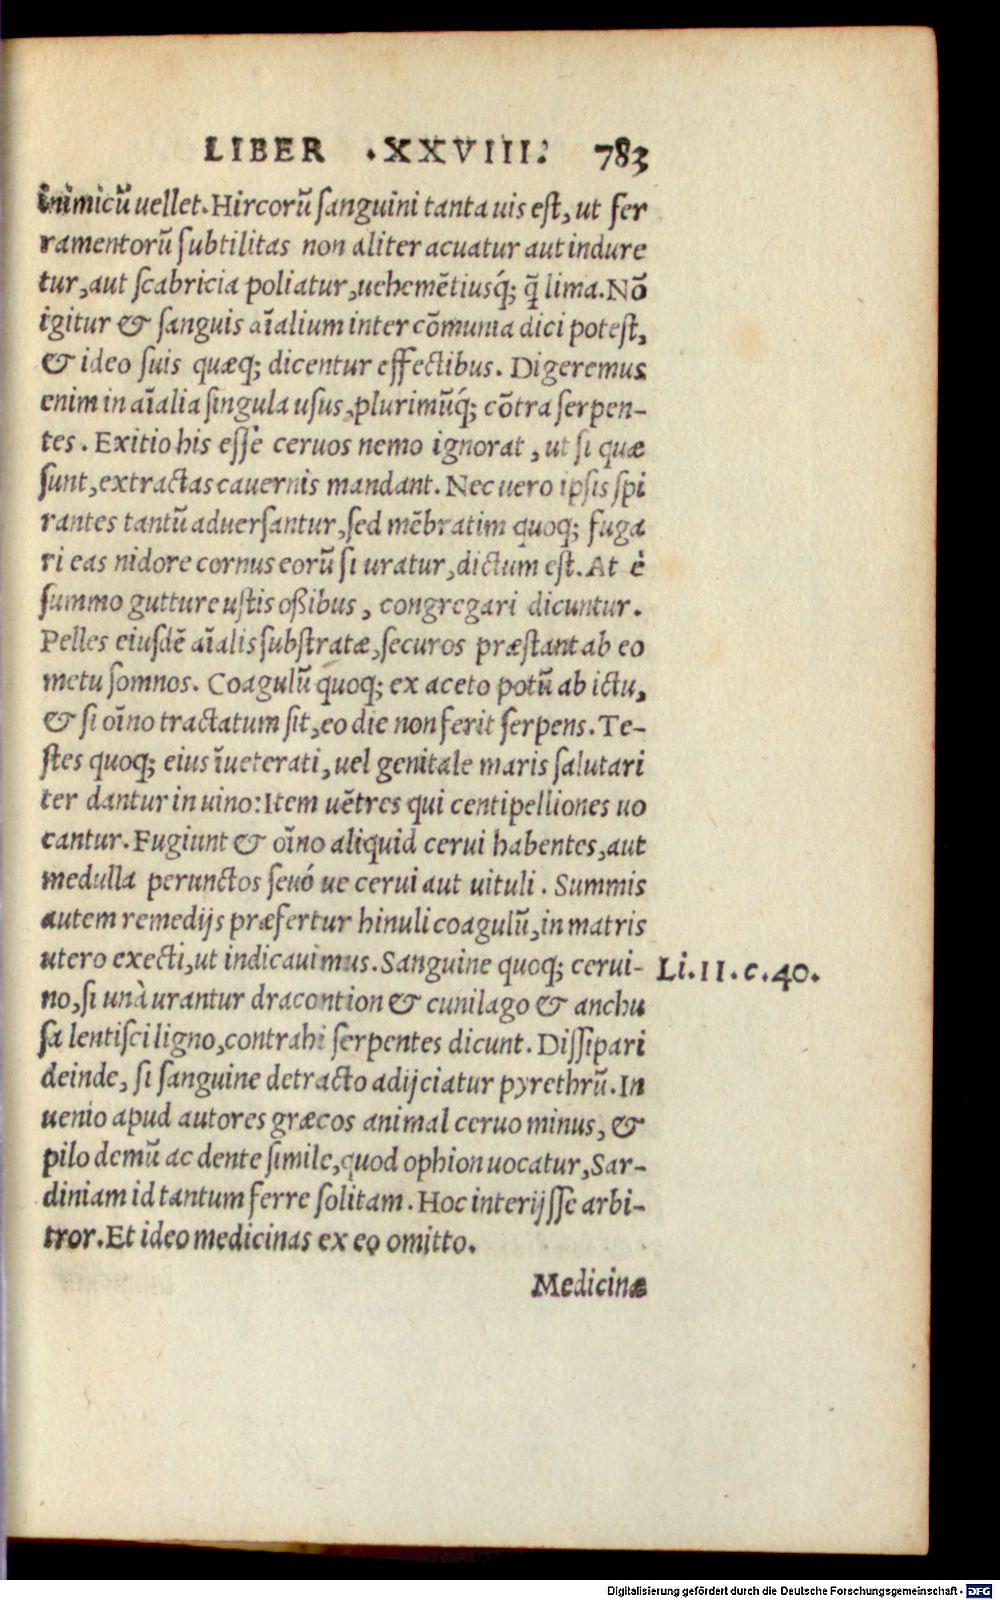 LIBER .XXVIII. 783
inimicũ uellet. Hircorũ ſanguini tanta uis eſt, ut fer
ramentorũ ſubtilitas non aliter acuatur aut indure
tur, aut ſcabricia poliatur, uehemẽtiusq́; q̃ lima. Nõ
igitur & ſanguis aĩalium inter cõmunia dici poteſt,
& ideo ſuis quæq; dicentur effectibus. Digeremus
enim in aĩalia ſingula uſus, plurimũq́; cõtra ſerpen-
tes. Exitio his eſſe ceruos nemo ignorat, ut ſi quæ
ſunt, extractas cauernis mandant. Nec uero ipſis ſpi
rantes tantũ aduerſantur, ſed mẽbratim quoq; fuga
ri eas nidore cornus eorũ ſi uratur, dictum eſt. At è
ſummo gutture uſtis oſſibus, congregari dicuntur.
Pelles eiuſdẽ aĩalis ſubſtratæ, ſecuros præſtant ab eo
metu ſomnos. Coagulũ quoq; ex aceto potũ ab ictu,
& ſi oĩno tractatum ſit, eo die non ferit ſerpens. Te-
ſtes quoq; eius ĩueterati, uel genitale maris ſalutari
ter dantur in uino: Item uẽtres qui centipelliones uo
cantur. Fugiunt & oĩno aliquid cerui habentes, aut
medulla perunctos ſeuó ue cerui aut uituli. Summis
autem remedijs præfertur hinuli coagulũ, in matris
utero execti, ut indicauimus. Sanguine quoq; cerui- Li. 11. c. 40.
no, ſi unà urantur dracontion & cunilago & anchu
ſa lentiſci ligno, contrahi ſerpentes dicunt. Diſſipari
deinde, ſi ſanguine detracto adijciatur pyrethrũ. In
uenio apud autores græcos animal ceruo minus, &
pilo demũ ac dente ſimile, quod ophion uocatur, Sar-
diniam id tantum ferre ſolitam. Hoc interijſſe arbi-
tror. Et ideo medicinas ex eo omitto.
Medicinæ
Digitalisierung gefördert durch die Deutsche Forschungsgemeinschaft - DFG